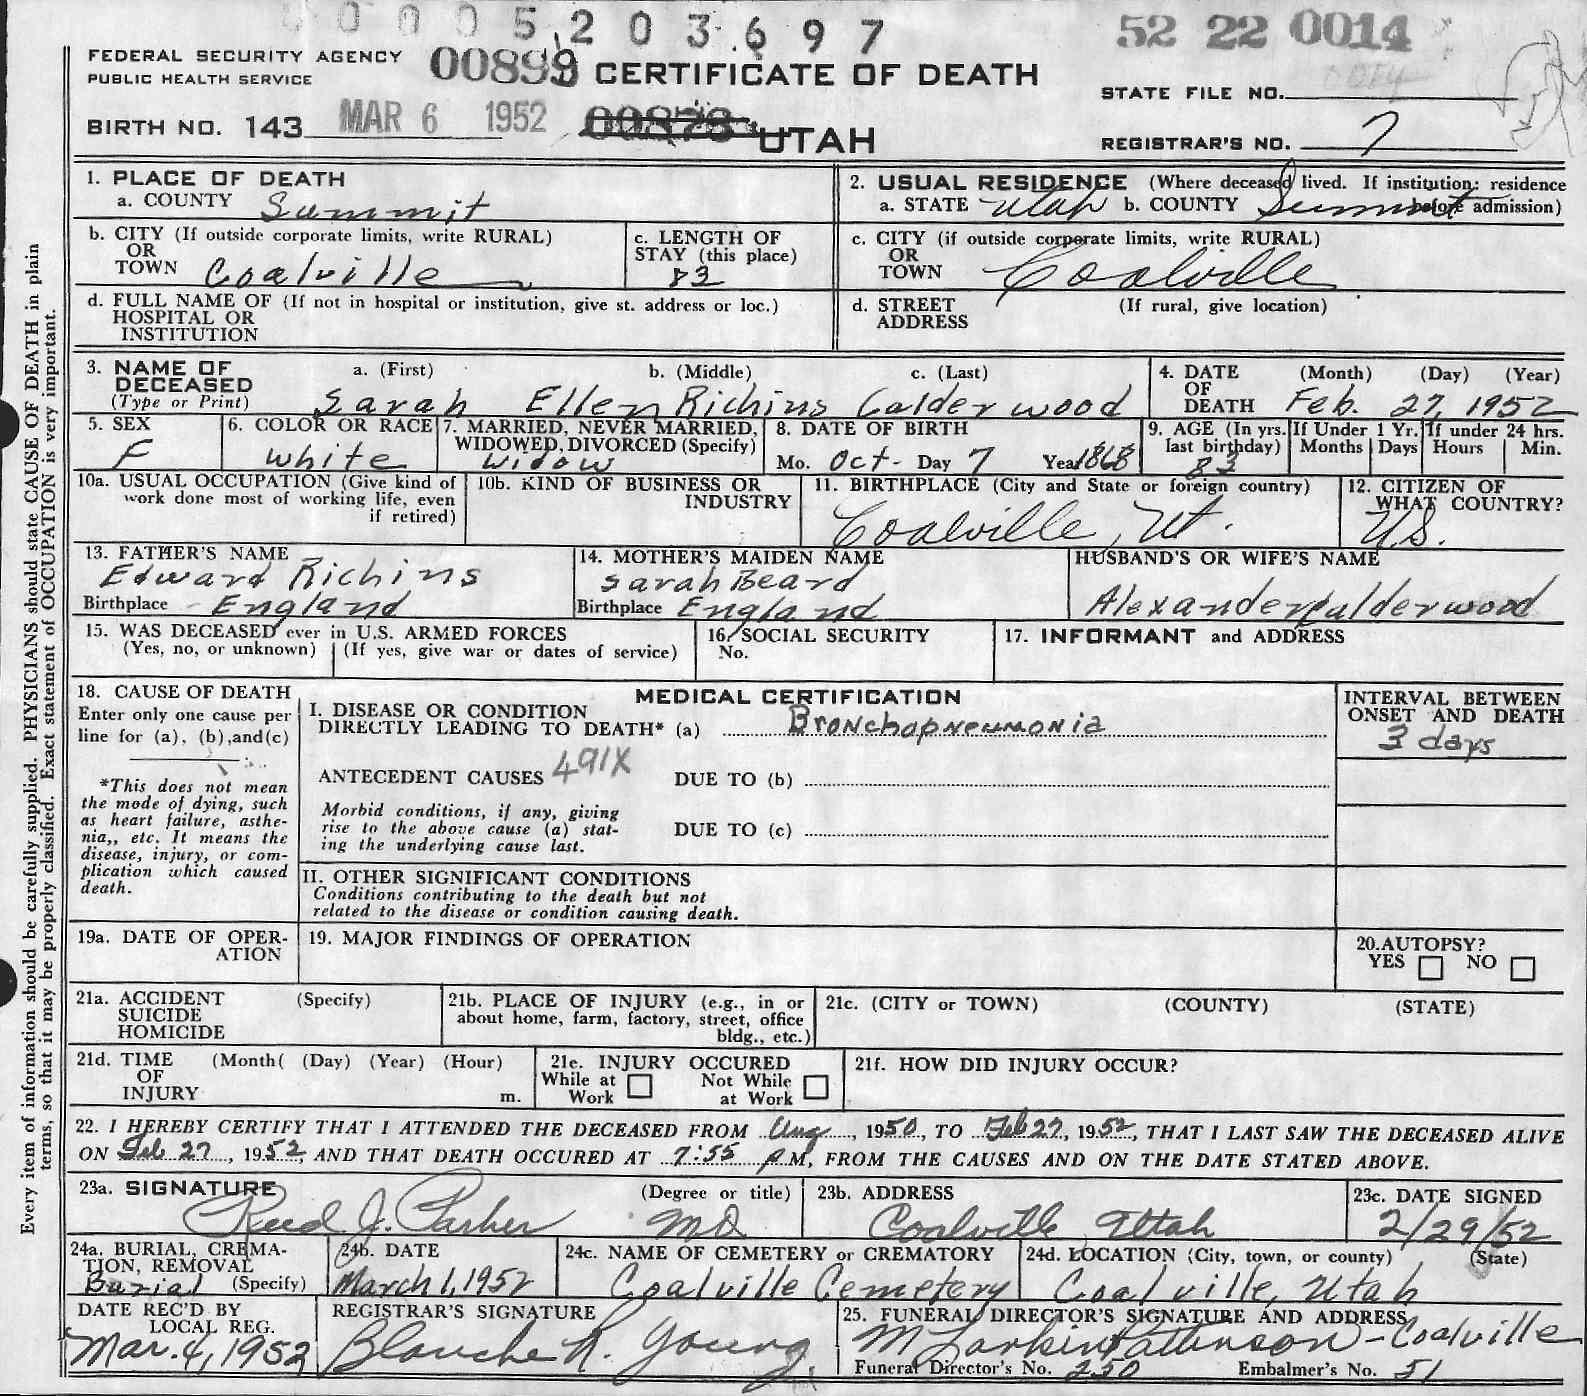 0 0 0 5 2 0 3 6 9 7
52 22 0014
FEDERAL SECURITY AGENCY
PUBLIC HEALTH SERVICE
00899 CERTIFICATE OF DEATH
STATE FILE NO.
BIRTH NO. 143 MAR 6 1952 00878 UTAH
REGISTRAR'S NO. 7
1. PLACE OF DEATH
a. COUNTY Summit
2. USUAL RESIDENCE (Where deceased lived. If institution: residence before admission)
a. STATE Utah b. COUNTY Summit
b. CITY (If outside corporate limits, write RURAL)
OR
TOWN Coalville
c. LENGTH OF
STAY (this place)
83
c. CITY (if outside corporate limits, write RURAL)
OR
TOWN Coalville
d. FULL NAME OF (If not in hospital or institution, give st. address or loc.)
HOSPITAL OR
INSTITUTION
d. STREET (If rural, give location)
ADDRESS
3. NAME OF
DECEASED
(Type or Print)
a. (First) b. (Middle) c. (Last)
Sarah Ellen Richins Calderwood
4. DATE (Month) (Day) (Year)
OF
DEATH Feb. 27, 1952
5. SEX
F
6. COLOR OR RACE
white
7. MARRIED, NEVER MARRIED,
WIDOWED, DIVORCED (Specify)
Widow
8. DATE OF BIRTH
Mo. Oct- Day 7 Year 1868
9. AGE (In yrs.
last birthday)
83
If Under 1 Yr.
Months Days
If under 24 hrs.
Hours Min.
10a. USUAL OCCUPATION (Give kind of
work done most of working life, even
if retired)
10b. KIND OF BUSINESS OR
INDUSTRY
11. BIRTHPLACE (City and State or foreign country)
Coalville, Ut.
12. CITIZEN OF
WHAT COUNTRY?
U.S.
13. FATHER'S NAME
Edward Richins
Birthplace England
14. MOTHER'S MAIDEN NAME
Sarah Beard
Birthplace England
HUSBAND'S OR WIFE'S NAME
Alexander Calderwood
15. WAS DECEASED ever in U.S. ARMED FORCES
(Yes, no, or unknown) (If yes, give war or dates of service)
16. SOCIAL SECURITY
No.
17. INFORMANT and ADDRESS
18. CAUSE OF DEATH
Enter only one cause per
line for (a), (b),and(c)
*This does not mean
the mode of dying, such
as heart failure, asthe-
nia,, etc. It means the
disease, injury, or com-
plication which caused
death.
MEDICAL CERTIFICATION
I. DISEASE OR CONDITION
DIRECTLY LEADING TO DEATH* (a) Bronchopneumonia
ANTECEDENT CAUSES 491X DUE TO (b)
Morbid conditions, if any, giving
rise to the above cause (a) stat-
ing the underlying cause last.
DUE TO (c)
INTERVAL BETWEEN
ONSET AND DEATH
3 days
II. OTHER SIGNIFICANT CONDITIONS
Conditions contributing to the death but not
related to the disease or condition causing death.
19a. DATE OF OPER-
ATION
19. MAJOR FINDINGS OF OPERATION
20.AUTOPSY?
YES NO
21a. ACCIDENT (Specify)
SUICIDE
HOMICIDE
21b. PLACE OF INJURY (e.g., in or
about home, farm, factory, street, office
bldg., etc.)
21c. (CITY or TOWN) (COUNTY) (STATE)
21d. TIME (Month( (Day) (Year) (Hour)
OF
INJURY m.
21e. INJURY OCCURED
While at Work Not While at Work
21f. HOW DID INJURY OCCUR?
22. I HEREBY CERTIFY THAT I ATTENDED THE DECEASED FROM Aug, 1950, TO Feb 27, 1952, THAT I LAST SAW THE DECEASED ALIVE
ON Feb 27, 1952, AND THAT DEATH OCCURED AT 7:55 P.M, FROM THE CAUSES AND ON THE DATE STATED ABOVE.
23a. SIGNATURE (Degree or title)
Reed J. Parker MD
23b. ADDRESS
Coalville Utah
23c. DATE SIGNED
2/29/52
24a. BURIAL, CREMA-
TION, REMOVAL
Burial (Specify)
24b. DATE
March 1, 1952
24c. NAME OF CEMETERY or CREMATORY
Coalville Cemetery
24d. LOCATION (City, town, or county) (State)
Coalville, Utah
DATE REC'D BY
LOCAL REG.
Mar. 4, 1952
REGISTRAR'S SIGNATURE
Blanche R. Young
25. FUNERAL DIRECTOR'S SIGNATURE AND ADDRESS
M Larkin Pattinson - Coalville
Funeral Director's No. 250 Embalmer's No. 51
Every item of information should be carefully supplied. PHYSICIANS should state CAUSE OF DEATH in plain
terms, so that it may be properly classified. Exact statement of OCCUPATION is very important.